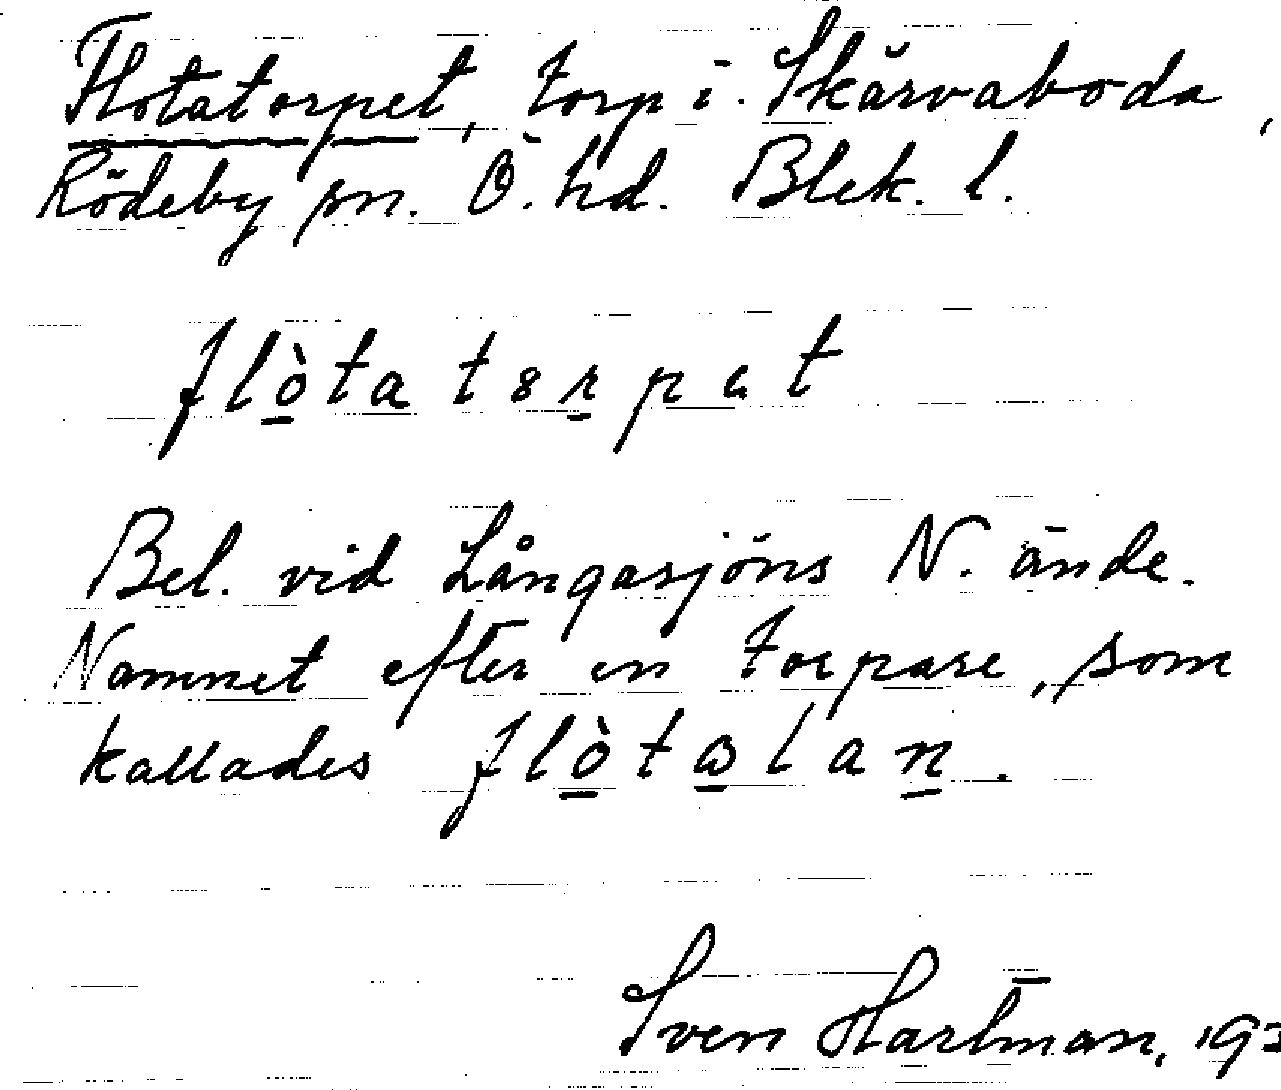 Flotatorpet, torp i Skärvaboda,
Rödeby sn. Ö. hd. Blek. l.
flòta torpat
Bel. vid Långasjöns N. ände.
Namnet efter en torpare, som
kallades flòtalan.
Sven Hartman, 193